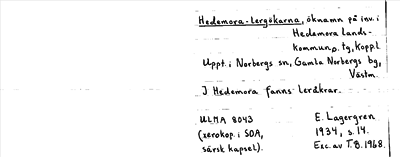 Hedemora-lergökarna, öknamn på inv. i
Hedemora lands-
kommun, tg, Koppl.
Uppt. i Norbergs sn, Gamla Norbergs bg,
Västm.
I Hedemora fanns leråkrar.
ULMA 8043
(xerokop. i SOA,
särsk kapsel).
E. Lagergren
1934, s. 14.
Exc. av T.B. 1968.